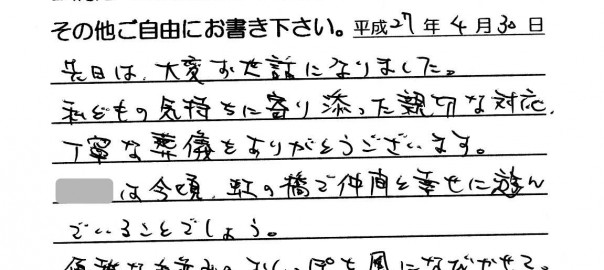 その他ご自由にお書き下さい。平成27年4月30日
先日は、大変お世話になりました。
私どもの気持ちに寄り添った親切な対応、
丁寧な葬儀をありがとうございます。
は今頃、虹の橋で仲間と幸せに遊ん
でいることでしょう。
しっぽを風になびかせて。